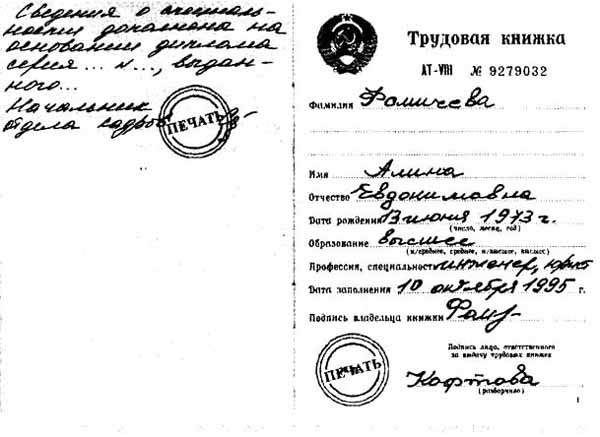 Сведения о специаль-
ности дополнена на
основании диплома
серия... N..., выдан-
ного...
Начальник
отдела кадров
ПЕЧАТЬ
Трудовая книжка
АТ-VIII № 9279032
Фамилия Фомичева
Имя Алина
Отчество Евдокимовна
Дата рождения 13 июня 1973 г.
(число, месяц, год)
Образование высшее
(н/среднее, среднее, н/высшее, высшее)
Профессия, специальность инженер, юрист
Дата заполнения 10 октября 1995 г.
Подпись владельца книжки Фом
Подпись лица, ответственного
за выдачу трудовых книжек
ПЕЧАТЬ
Кофтова
(разборчиво)
1